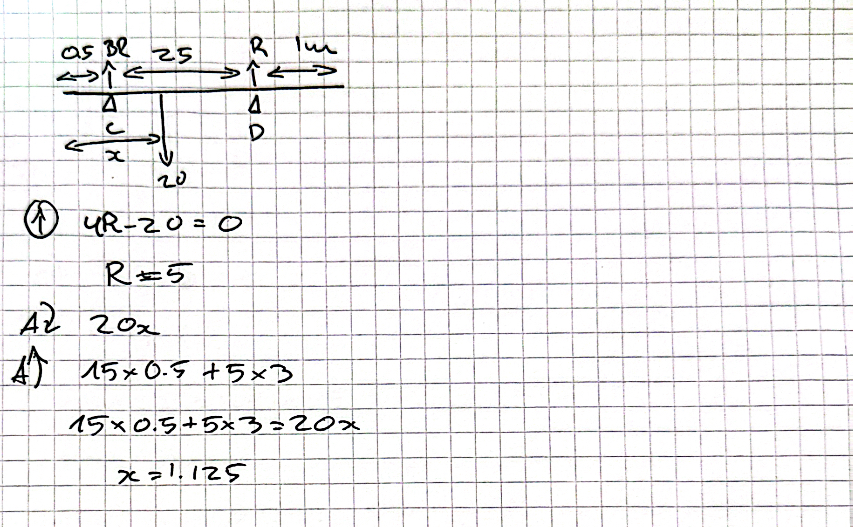 0.5 3R 2.5 R 1m
C D
x
20
↑ 4R - 20 = 0
R = 5
A↻ 20x
A↺ 15 × 0.5 + 5 × 3
15 × 0.5 + 5 × 3 = 20x
x = 1.125